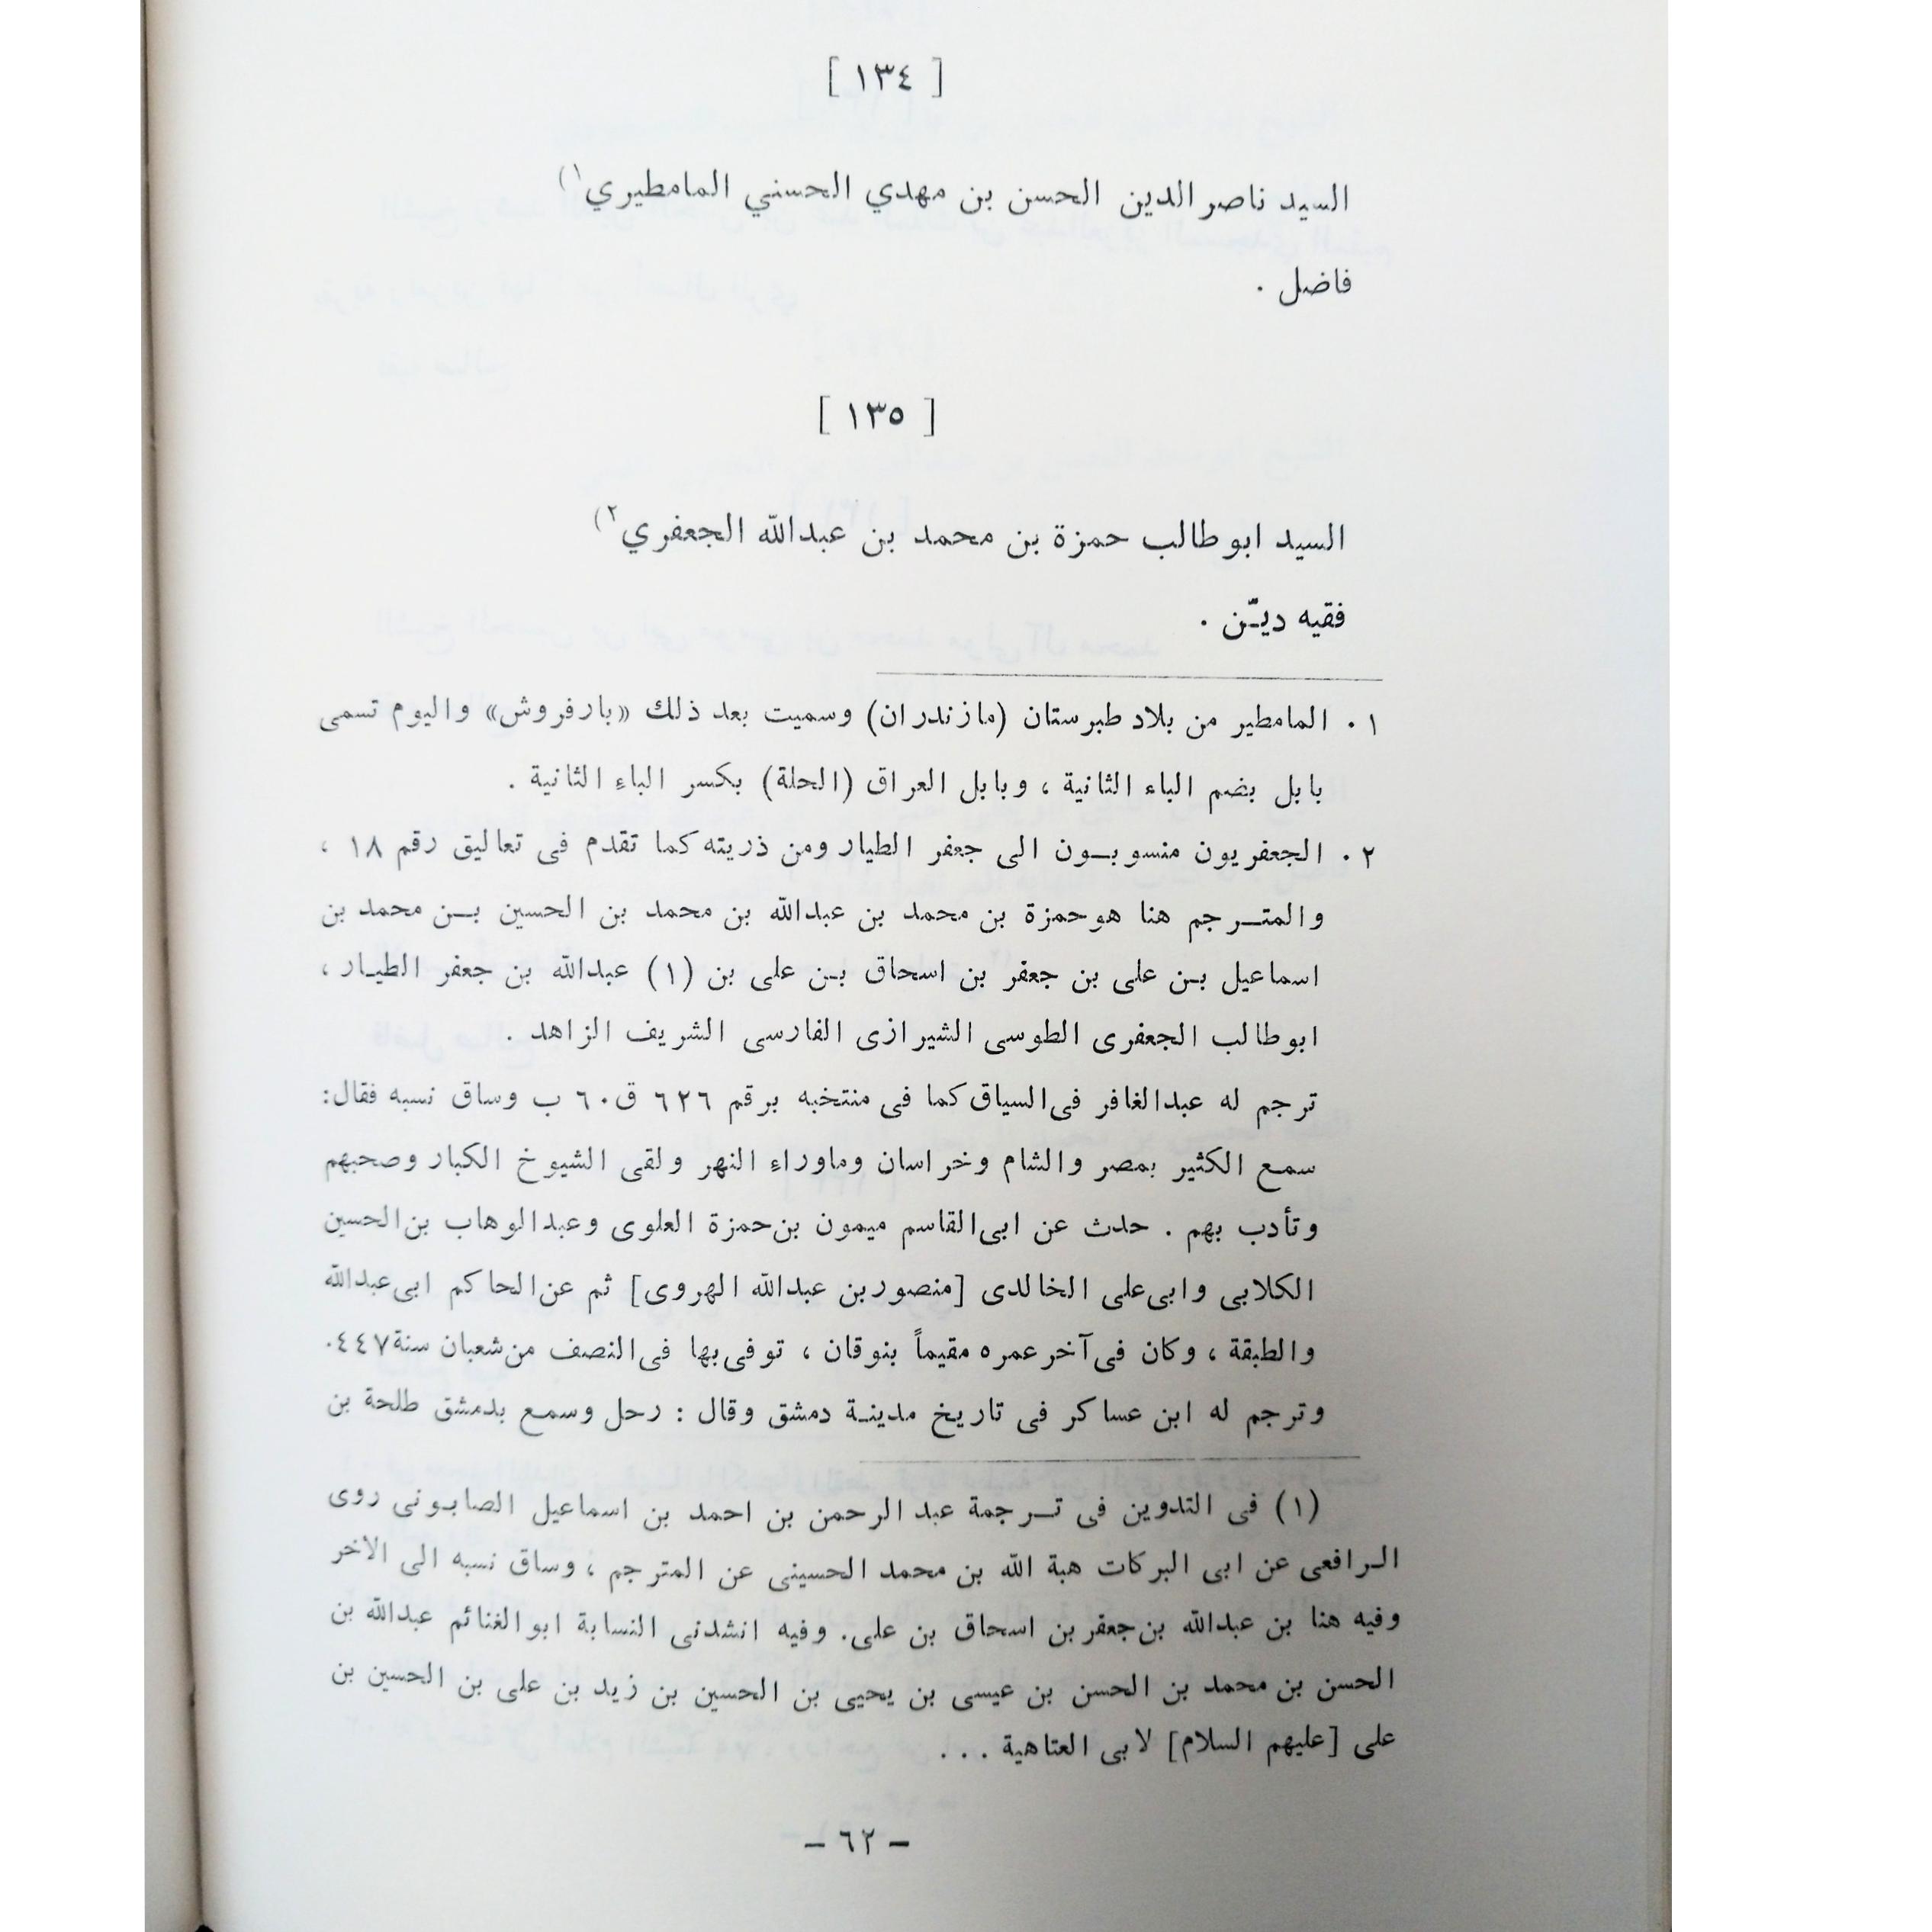 [ ١٣٤ ]
السيد ناصر الدين الحسن بن مهدي الحسني المامطيري ١)
فاضل .
[ ١٣٥ ]
السيد ابو طالب حمزة بن محمد بن عبدالله الجعفري ٢)
فقيه ديـّن .
١ . المامطير من بلاد طبرستان (مازندران) وسميت بعد ذلك «بارفروش» واليوم تسمى
بابل بضم الباء الثانية ، وبابل العراق (الحلة) بكسر الباء الثانية .
٢ . الجعفريون منسوبـون الى جعفر الطيار ومن ذريته كما تقدم فى تعاليق رقم ١٨ ،
والمتـرجم هنا هو حمزة بن محمد بن عبدالله بن محمد بن الحسين بـن محمد بن
اسماعيل بـن على بن جعفر بن اسحاق بـن على بن (١) عبدالله بن جعفر الطيـار ،
ابوطالب الجعفرى الطوسى الشيرازى الفارسى الشريف الزاهد .
ترجم له عبدالغافر فى السياق كما فى منتخبه برقم ٦٢٦ ق ٦٠ ب وساق نسبه فقال:
سمع الكثير بمصر والشام وخراسان وماوراء النهر ولقى الشيوخ الكبار وصحبهم
وتأدب بهم . حدث عن ابى القاسم ميمون بن حمزة العلوى وعبدالوهاب بن الحسين
الكلابى وابى على الخالدى [منصور بن عبدالله الهروى] ثم عن الحاكم ابى عبدالله
والطبقة ، وكان فى آخر عمره مقيماً بنوقان ، توفى بها فى النصف من شعبان سنة ٤٤٧.
وترجم له ابن عساكر فى تاريخ مدينـة دمشق وقال : رحل وسمع بدمشق طلحة بن
(١) فى التدوين فى تـرجمة عبد الرحمن بن احمد بن اسماعيل الصابونى روى
الـرافعى عن ابى البركات هبة الله بن محمد الحسينى عن المترجم ، وساق نسبه الى الاخر
وفيه هنا بن عبدالله بن جعفر بن اسحاق بن على. وفيه انشدنى النسابة ابوالغنائم عبدالله بن
الحسن بن محمد بن الحسن بن عيسى بن يحيى بن الحسين بن زيد بن على بن الحسين بن
على [عليهم السلام] لابى العتاهية . . .
– ٦٢ –